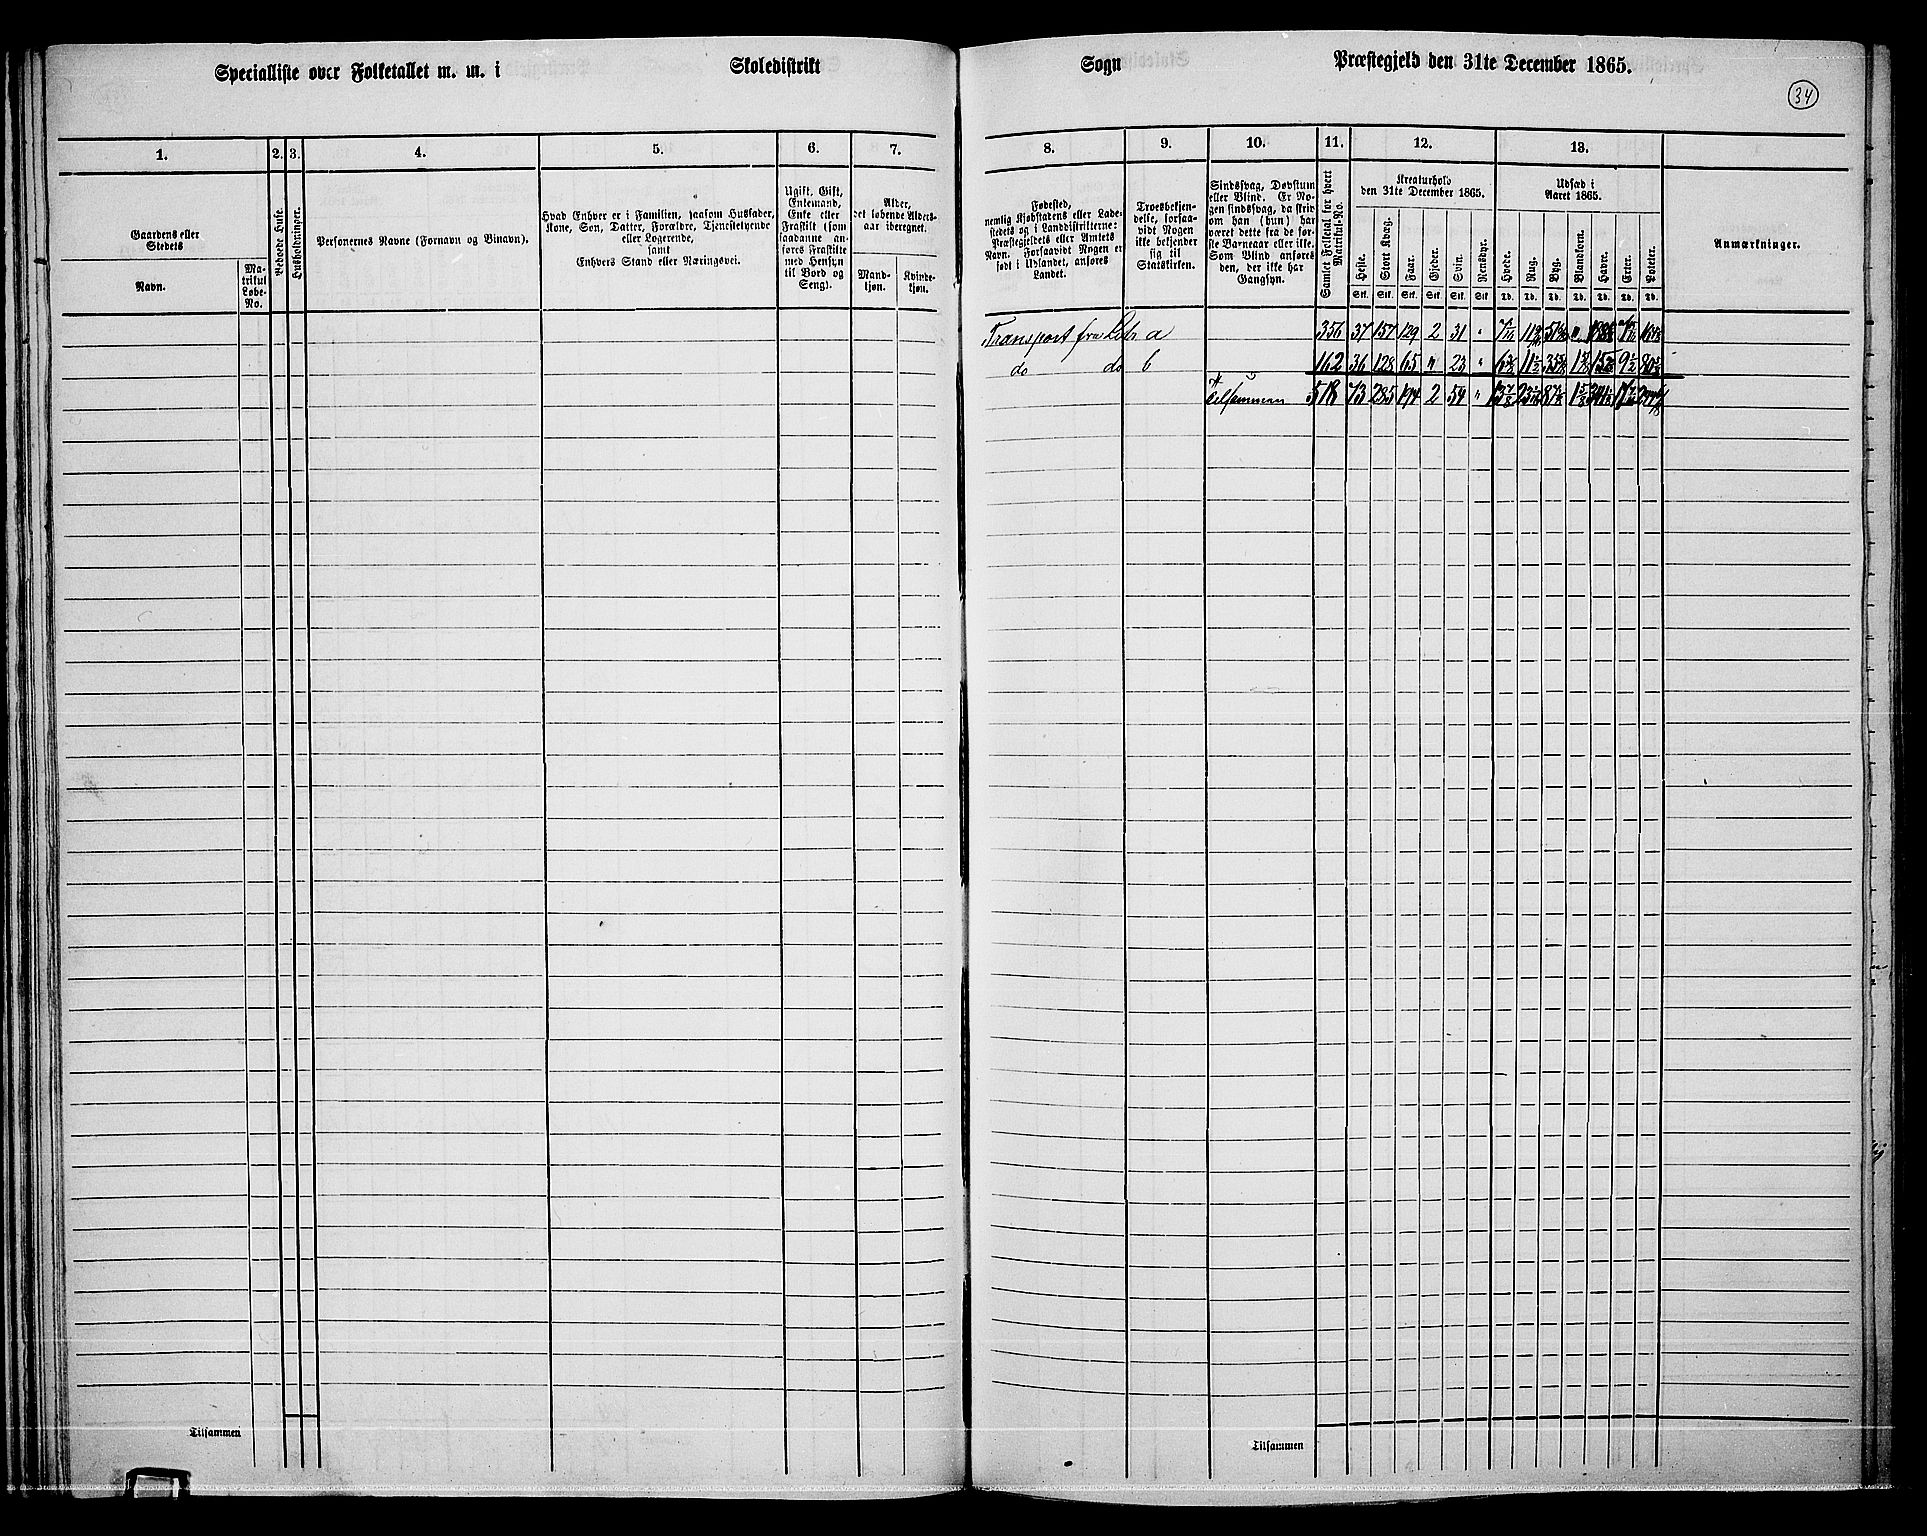 Specialliste over Folketallet m. m. i Skoledistrikt Sogn Præstegjeld den 31te December 1865.
34
1. 2. 3. 4. 5. 6. 7. 8. 9. 10. 11. 12. 13.
Gaardens eller
Stedets
Navn.
Ma-
trikul
Løbe-
No.
Beboede Huse.
Husholdninger.
Personernes Navne (Fornavn og Binavn).
Hvad Enhver er i Familien, saasom Husfader,
Kone, Søn, Datter, Forældre, Tjenestetyende
eller Logerende,
samt
Enhvers Stand eller Næringsvei.
Ugift, Gift,
Enkemand,
Enke eller
Fraskilt (som
saadanne an-
føres Fraskilte
med Hensyn
til Bord og
Seng).
Alder,
det løbende Alders-
aar iberegnet.
Mand-
kjøn.
Kvinde-
kjøn.
Fødested,
nemlig Kjøbstadens eller Lade-
stedets og i Landdistrikterne:
Præstegjeldets eller Amtets
Navn. Forsaavidt Nogen er
født i Udlandet, anføres
Landet.
Troesbekjen-
delse, forsaa-
vidt Nogen
ikke bekjender
sig til
Statskirken.
Sindssvag, Døvstum
eller Blind. Er No-
gen sindssvag, da skriv
om han (hun) har
været dette fra de før-
ste Barneaar eller ikke.
Som Blind anføres
den, der ikke har
Gangsyn.
Samlet Folketal for hvert
Matrikul-No.
Kreaturhold
den 31te December 1865.
Heste. Stort Kvæg. Faar. Gjeder. Svin. Rensdyr.
Stk. Stk. Stk. Stk. Stk. Stk
Udsæd i
Aaret 1865.
Hvede. Rug. Byg. Blandkorn. Havre. Erter. Poteter.
Td. Td. Td. Td. Td. Td. Td.
Anmærkninger.
Transport fra Litr a 356 37 157 129 2 31 "
do do b 162 36 128 65 " 23 "
Tilsammen 518 73 285 194 2 54 "
Tilsammen
Tilsammen